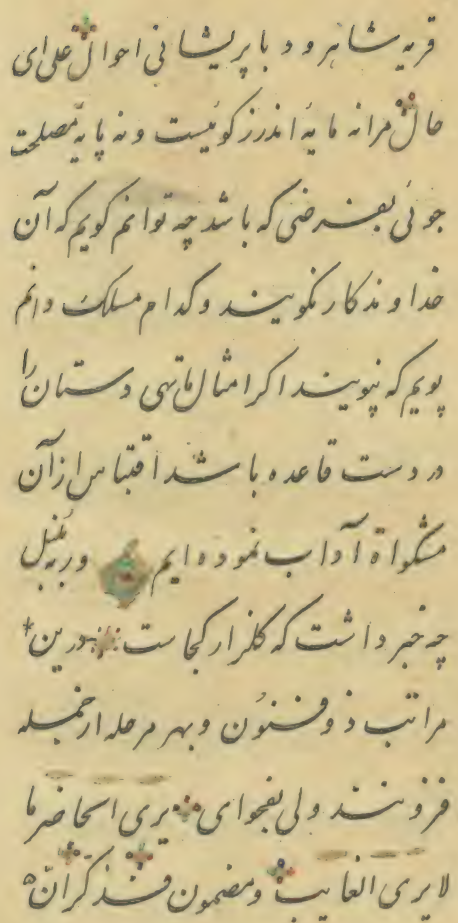 قریه شاهرود با پریشانی احوال علی ای
حال مرا نه مایهٔ اندرز کوئیست و نه پایهٔ مصلحت
جوئی بفرضی که باشد چه توانم کویم که آن
خداوندکار نکویند و کدام مسلک دانم
پویم که نپویند اکر امثال ما تهی دستان را
در دست قاعده باشد اقتباس از آن
مشکواة آداب نموده ایم ورنه بلبل
چه خبر داشت که کلزار کجاست درین
مراتب ذوفنون و بهر مرحله از جمله
فزونند ولی بفحوای یری الحاضر ما
لا یری الغایب و مضمون فذکر ان